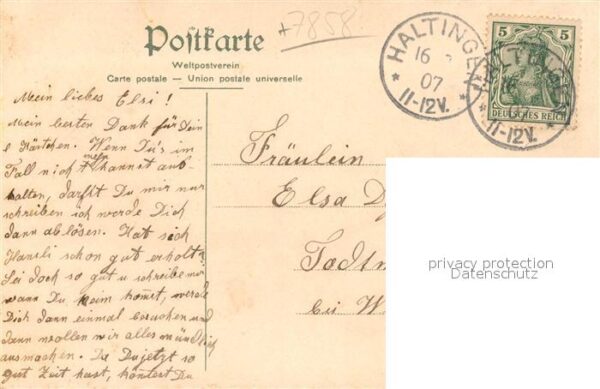 +7858
Postkarte
Weltpostverein
Carte postale — Union postale universelle
HALTINGEN
16
07
11-12V.
HALTINGEN
11-12V.
5 5
DEUTSCHES REICH
Mein liebes Elsi!
Mein besten Dank für Dein
l Kärtchen. Wenn Du's im
Fall nicht mehr kannst aus-
halten, darfst Du mir nur
schreiben ich werde Dich
dann ablösen. Hat sich
Hansli schon gut erholt?
Sei doch so gut u schreibe mir
wann Du heim komst, werde
Dich dann einmal besuchen und
dann wollen wir alles mündlich
ausmachen. Da Du jetzt so
gut Zeit hast, köntest Du
Fräulein
Elsa
Todtm
bei W
privacy protection
Datenschutz